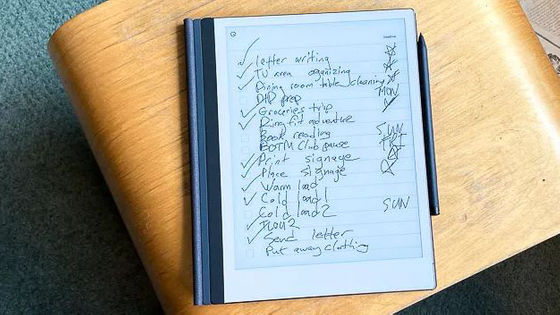 letter writing
TV area organizing
Dining room table cleaning
DND prep MON
Groceries trip
Ring fit adventure
Book reading SUN
BOTM Club pause
Print signage
Place signage
Warm load
Cold load 1
Cold load 2 SUN
Send letter
Put away clothing